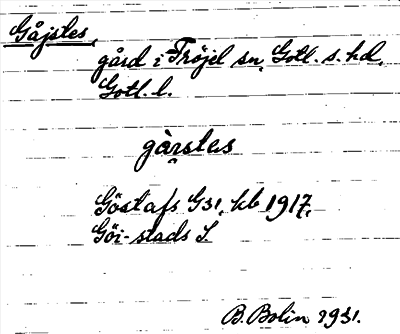 Gåjstes,
gård i Fröjel sn, Gotl. s. hd,
Gotl. l.
gàrstus
Göstafs G31, kb 1917,
Göi-stads J.
B. Bolin 1931.